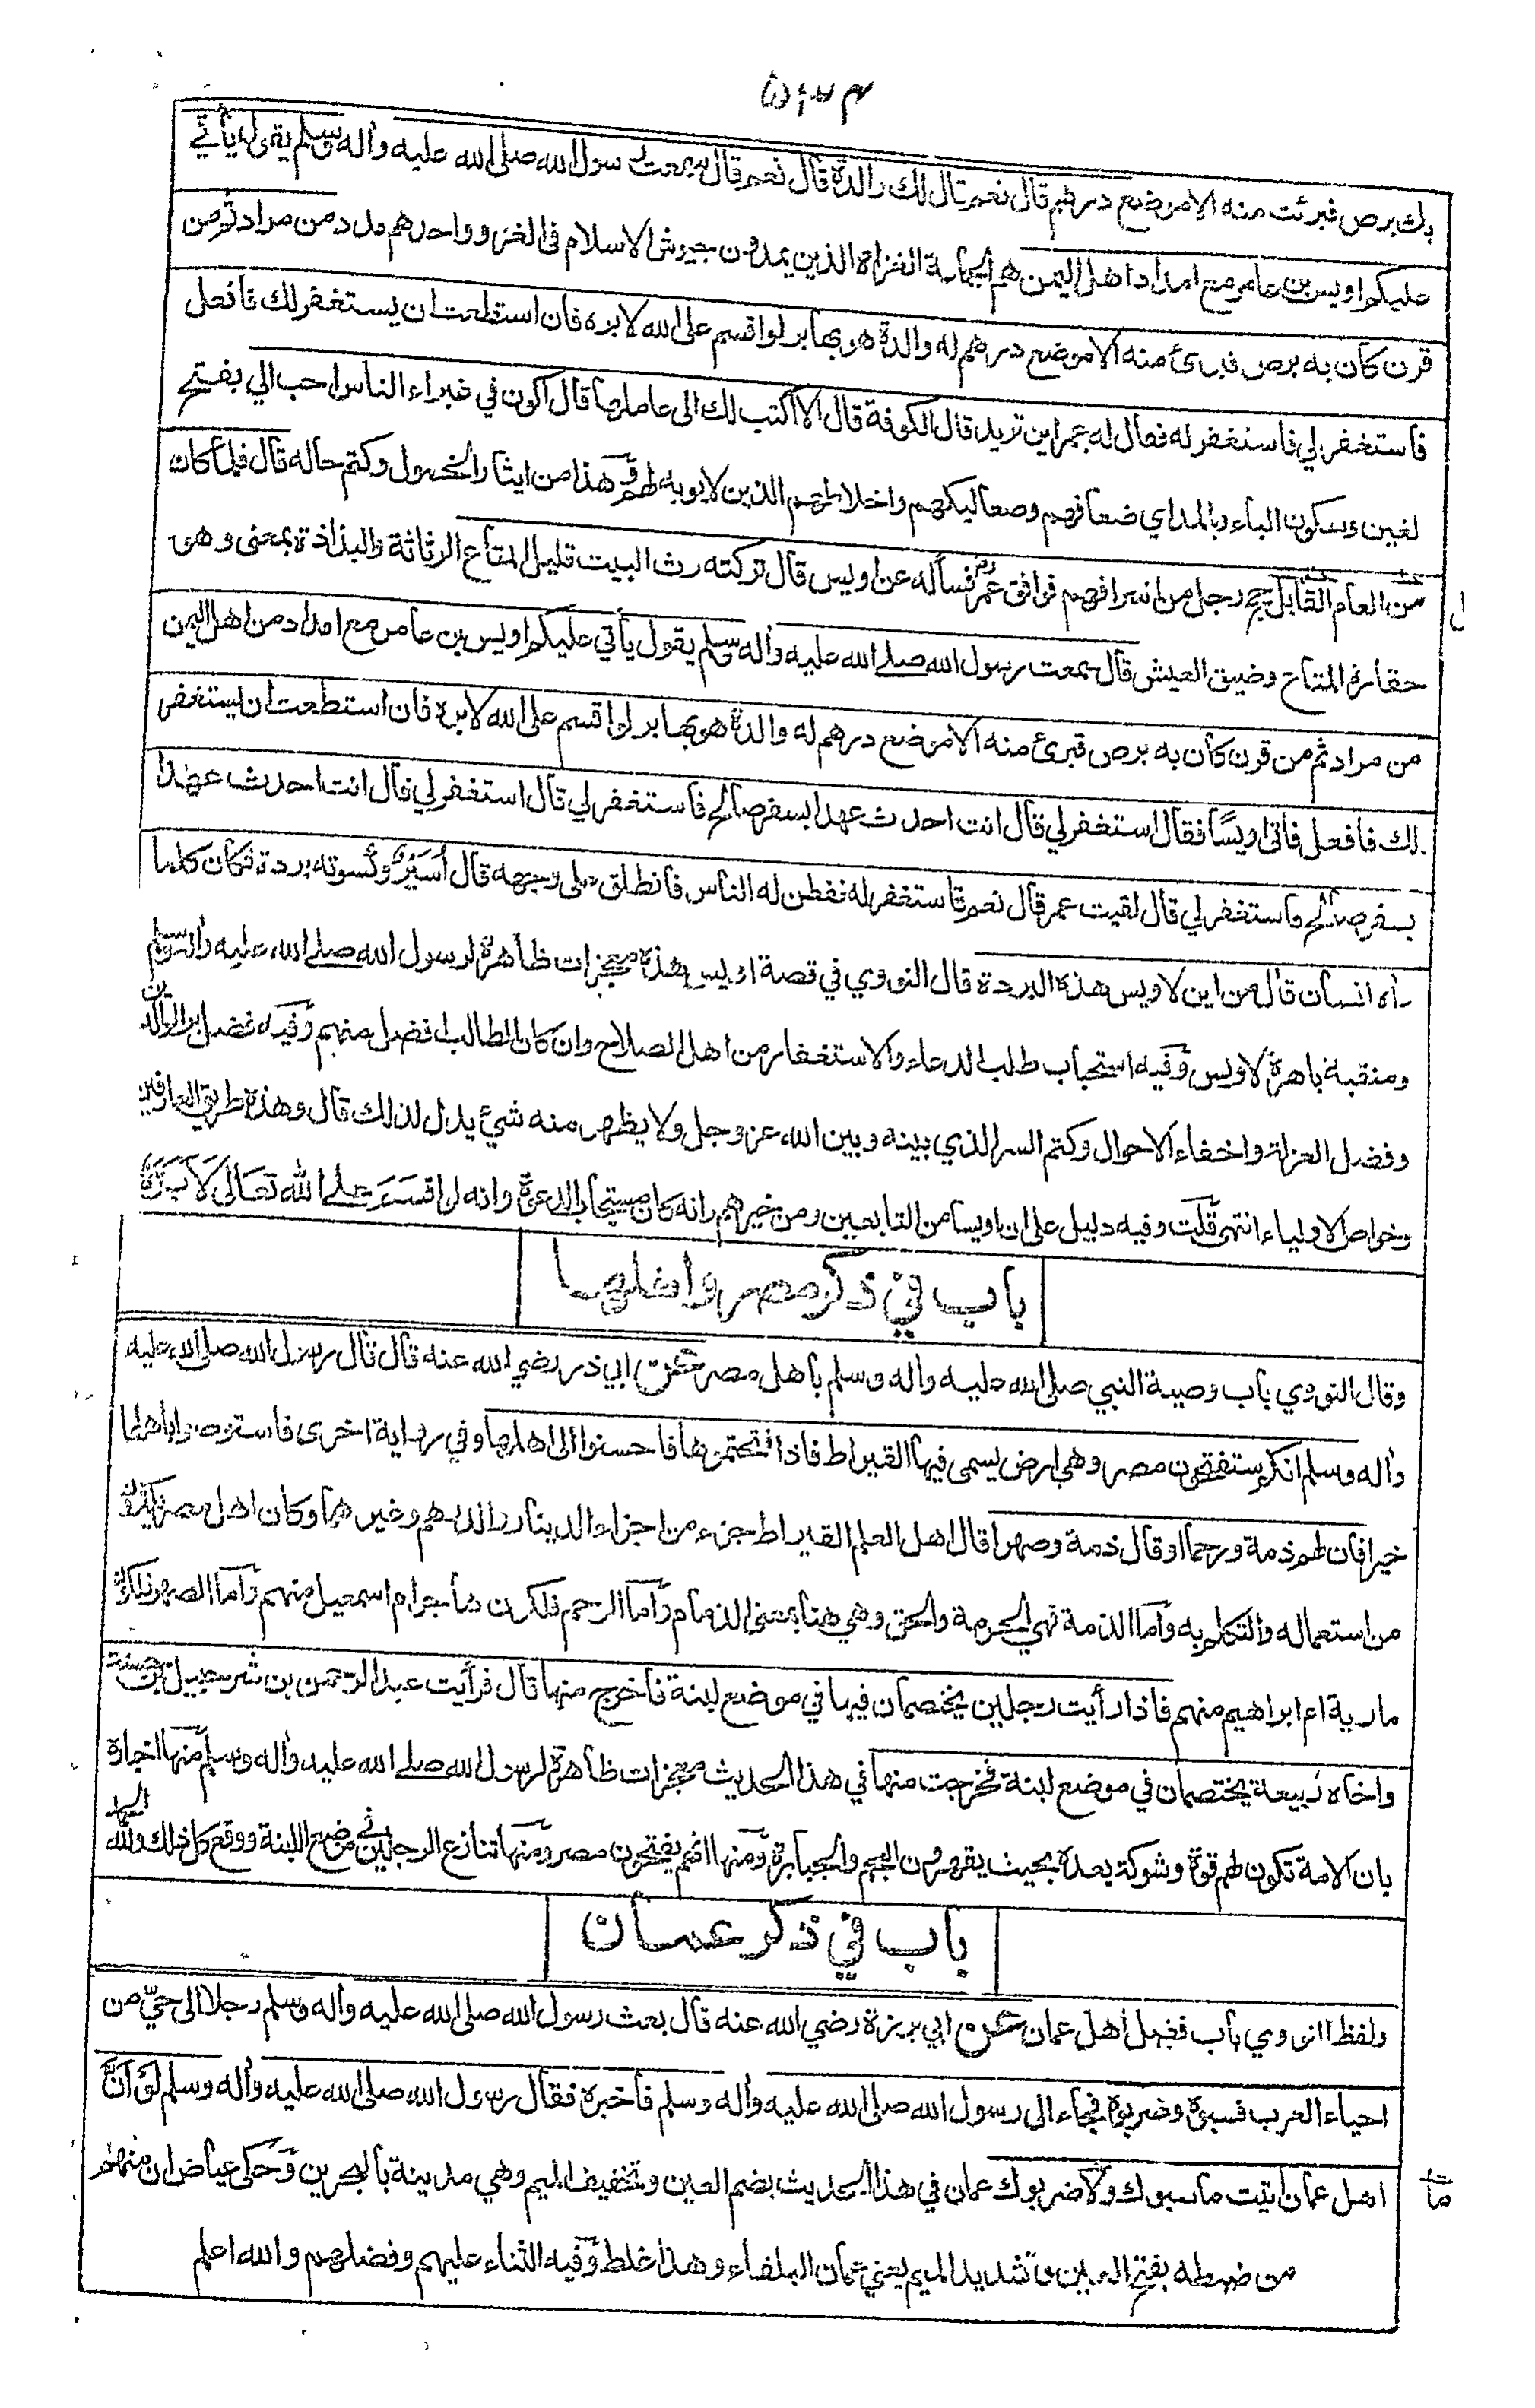 بك برص فبرئت منه الا موضع درهم قال نعم قال لك والدة قال نعم قال سمعت رسول الله صلى الله عليه وأله وسلم يقول يأتي
عليكم اويس بن عامر مع امداد اهل اليمن هم الجماعة الغزاة الذين يمدون جيوش الاسلام في الغزو واحدهم مدد من مراد ثم من
قرن كان به برص فبرئ منه الا موضع درهم له والدة هو بها بر لو اقسم على الله لابره فان استطعت ان يستغفر لك فافعل
فاستغفر لي فاستغفر له فقال له عمر اين تريد قال الكوفة قال الا اكتب لك الى عاملها قال اكون في غبراء الناس احب الي بفتح
لغين وسكون الباء وبالمد اي ضعافهم وصعاليكهم واخلاطهم الذين لا يوبه لهم وهذا من ايثار الخمول وكتم حاله قال فلما كان
من العام القابل حج رجل من اشرافهم فوافق عمر فسأله عن اويس قال تركته رث البيت قليل المتاع الرثاثة والبذاذة بمعنى وهو
حقارة المتاع وضيق العيش قال سمعت رسول الله صلى الله عليه وأله وسلم يقول يأتي عليكم اويس بن عامر مع امداد من اهل اليمن
من مراد ثم من قرن كان به برص فبرئ منه الا موضع درهم له والدة هو بها بر لو اقسم على الله لابره فان استطعت ان يستغفر
لك فافعل فأتى اويسًا فقال استغفر لي قال انت احدث عهدا بسفر صالح فاستغفر لي قال استغفر لي قال انت احدث عهدا
بسفر صالح واستغفر لي قال لقيت عمر قال نعم فاستغفر له ففطن له الناس فانطلق على وجهه قال أُسَيْرٌ وكسوته بردة فكان كلما
رأه انسان قال من اين لاويس هذه البردة قال النووي في قصة اويس هذه معجزات ظاهرة لرسول الله صلى الله عليه وأله وسلم
ومنقبة باهرة لاويس وفيه استحباب طلب الدعاء والاستغفار من اهل الصلاح وان كان الطالب افضل منهم وفيه فضل بر الوالدين
وفضل العزلة واخفاء الاحوال وكتم السر الذي بينه وبين الله عز وجل ولا يظهر منه شيئ يدل لذلك قال وهذة طريق العارفين
وخواص الاولياء انتهى قلت وفيه دليل على ان اويسا من التابعين ومن خيرهم وانه كان مستجاب الدعوة وانه لو اقسَمَ على الله تعَالى لاَبَرَّهُ
باب في ذكر مصر واهلها
وقال النووي باب وصية النبي صلى الله عليه وأله وسلم بأهل مصر عن ابي ذر رضي الله عنه قال قال رسول الله صلى الله عليه
وأله وسلم انكم ستفتحون مصر وهي ارض يسمى فيها القيراط فاذا فتحتموها فاحسنوا الى اهلها وفي رواية اخرى فاستوصوا بأهلها
خيرا فان لهم ذمة ورحما او قال ذمة وصهرا قال اهل العلم القيراط جزء من اجزاء الدينار والدرهم وغيرهما وكان اهل مصر يكثرون
من استعماله والتكلم به وأما الذمة فهي الحرمة والحق وهي هنا بمعنى الذمام وأما الرحم فلكون هأجر ام اسمعيل منهم وأما الصهر فلكون
مارية ام ابراهيم منهم فاذا رأيت رجلين يختصمان فيها في موضع لبنة فأخرج منها قال فرأيت عبد الرحمن بن شرحبيل بن حسنة
واخاه ربيعة يختصمان في موضع لبنة فخرجت منها في هذا الحديث معجزات ظاهرة لرسول الله صلى الله عليه وأله وسلم منها اخباره
بان الامة تكون لهم قوة وشوكة بعده بحيث يقهرون العجم والجبابرة ومنها انهم يفتحون مصر ومنها تنازع الرجلين في موضع اللبنة ووقع كل ذلك ولله الحمد
باب في ذكر عمان
ولفظ النووي باب فضل أهل عمان عن ابي برزة رضي الله عنه قال بعث رسول الله صلى الله عليه وأله وسلم رجلا الى حيّ من
احياء العرب فسبوه وضربوه فجاء الى رسول الله صلى الله عليه وأله وسلم فأخبره فقال رسول الله صلى الله عليه وأله وسلم لَوْ اَنَّ
اهل عمان اتيت ما سبوك ولا ضربوك عمان في هذا الحديث بضم العين وتخفيف الميم وهي مدينة بالبحرين وحكى عياض ان منهم
ما
من ضبطه بفتح العين وتشديد الميم يعني عمان البلقاء وهذا غلط وفيه الثناء عليهم وفضلهم والله اعلم